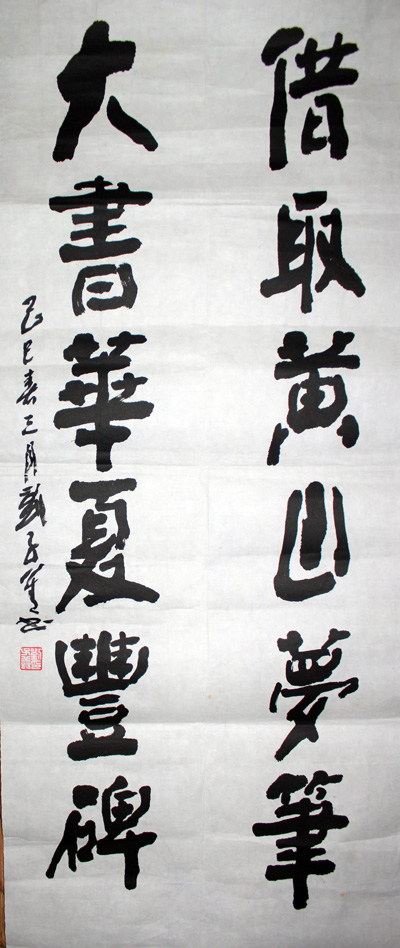 借取黄山夢筆
大書華夏豐碑
己巳春三月